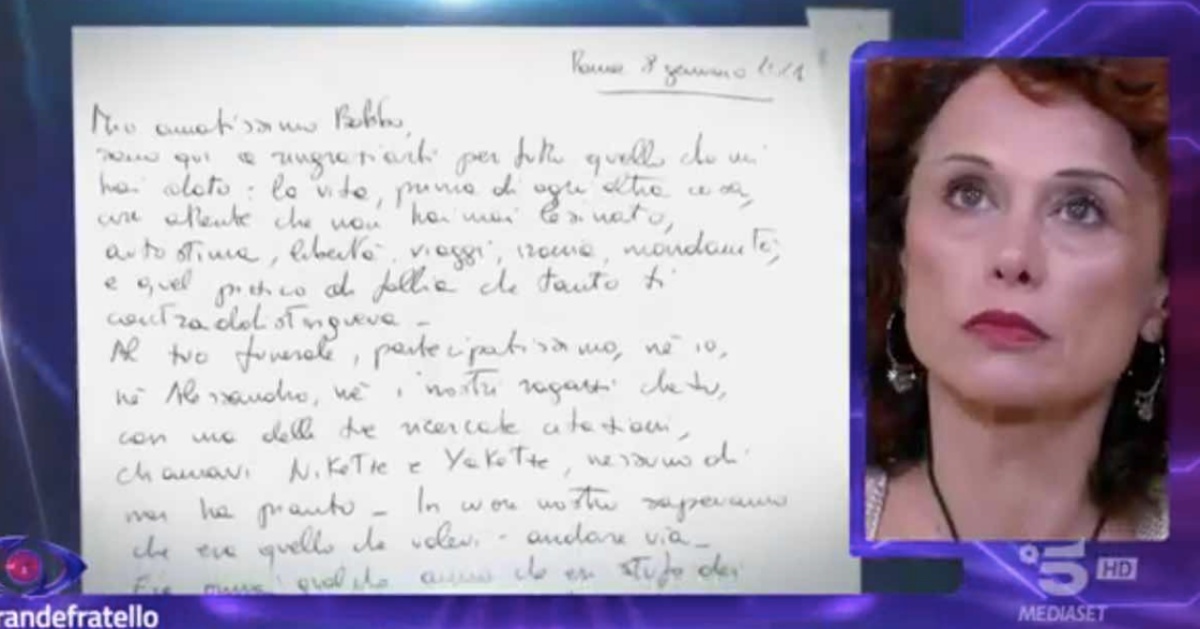 Roma 8 gennaio 2021
Mio amatissimo Babbo,
sono qui a ringraziarti per tutto quello che mi
hai dato: la vita, prima di ogni altra cosa,
che non hai mai lesinato,
autostima, libertà, viaggi, ironia, mondanità,
e quel pizzico di follia che tanto ti
contraddistingueva -
Al tuo funerale, partecipatissimo, nè io,
nè Alessandro, nè i nostri ragazzi che tu,
con una delle tue ricercate citazioni,
chiamavi NiKette e YaKette, nessuno di
noi ha pianto - In cuor nostro sapevamo
che era quello che volevi - andare via -
Era qualche anno che eri stufo dei
randefratello
5 HD
MEDIASET